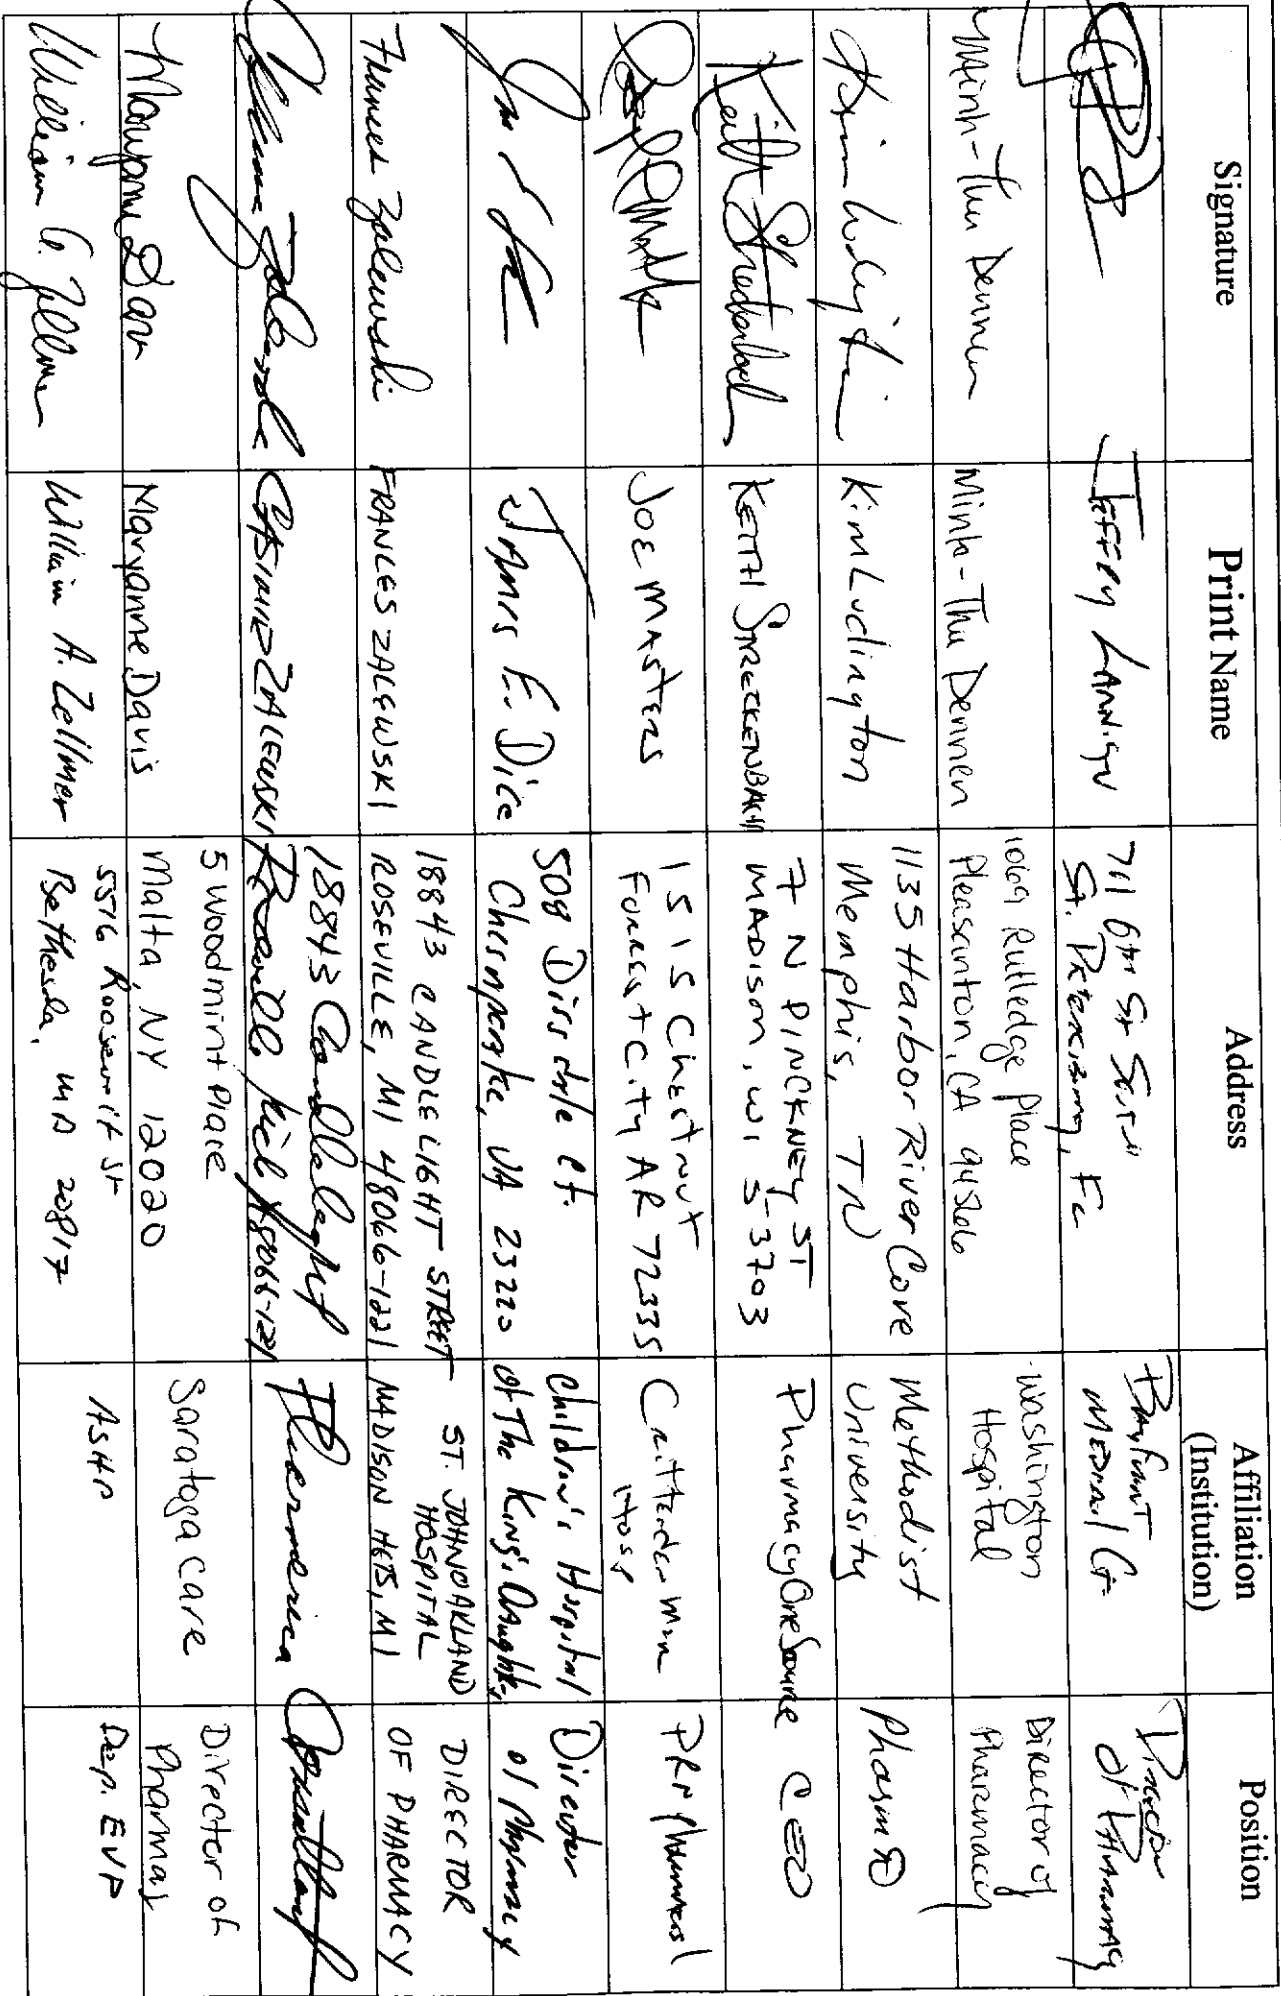 Signature
Print Name
Address
Affiliation
(Institution)
Position
Jeffrey Lannigan
701 6th St South
St. Petersburg, FL
Bayfront
Medical Ctr
Director
of Pharmacy
Minh-Thu Dennen
Minh-Thu Dennen
1069 Rutledge Place
Pleasanton, CA 94566
Washington
Hospital
Director of
Pharmacy
Kim Ludington
1135 Harbor River Cove
Memphis, TN
Methodist
University
PharmD
Keith Streckenbach
KEITH STRECKENBACH
7 N PINCKNEY ST
MADISON, WI 53703
PharmacyOneSource
CEO
JOE MASTERS
1515 Chestnut
Forrest City AR 72335
Crittenden Mem
Hosp
PRN Pharmacist
James E. Dice
508 Dissdale Ct.
Chesapeake, VA 23220
Children's Hospital
of The King's Daughters
Director
of Pharmacy
Frances Zalewski
FRANCES ZALEWSKI
18843 CANDLELIGHT STREET
ROSEVILLE, MI 48066-1221
ST. JOHN OAKLAND
HOSPITAL
MADISON HGTS, MI
DIRECTOR
OF PHARMACY
CASIMIR ZALEWSKI
18843 Candlelight
Roseville, Mich 48066-1221
Consultant
Maryanne Davis
Maryanne Davis
5 Woodmint Place
Malta, NY 12020
Saratoga Care
Director of
Pharmacy
William A. Zellmer
William A. Zellmer
5516 Roosevelt St
Bethesda, MD 20817
ASHP
Dep. EVP